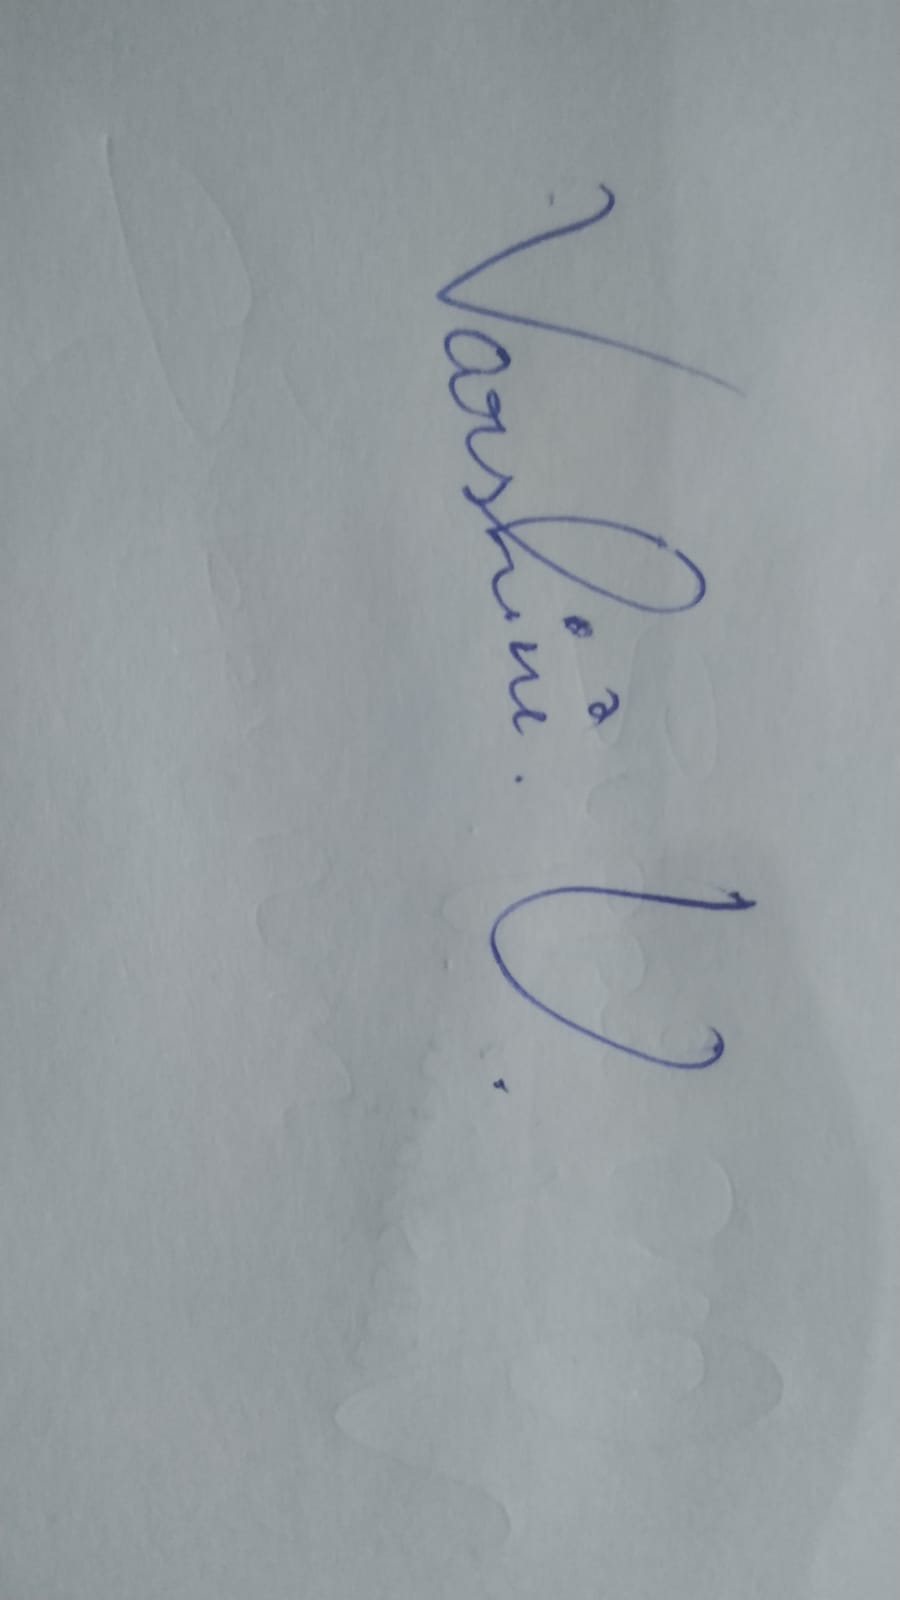 Varshini. V.